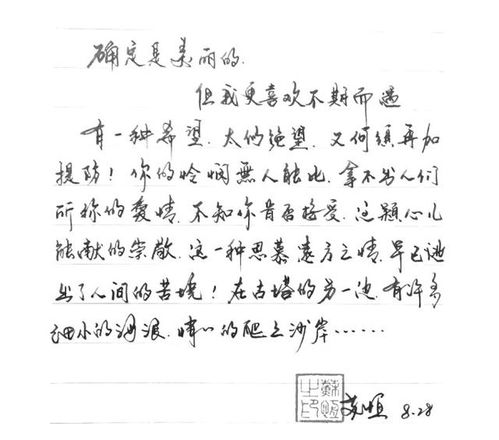 确定是美丽的.
但我更喜欢不期而遇
有一种希望.太似绝望.又何須再加
提防！你的怜悯無人能比.拿不出人们
所称的愛情.不知你肯否接受.这顆心儿
能献的崇敬.这一种思慕遠方之情.早已逃
出了人间的苦境！在古塔的另一边.有许多
细小的海浪.悄悄的爬上沙岸……
8.28